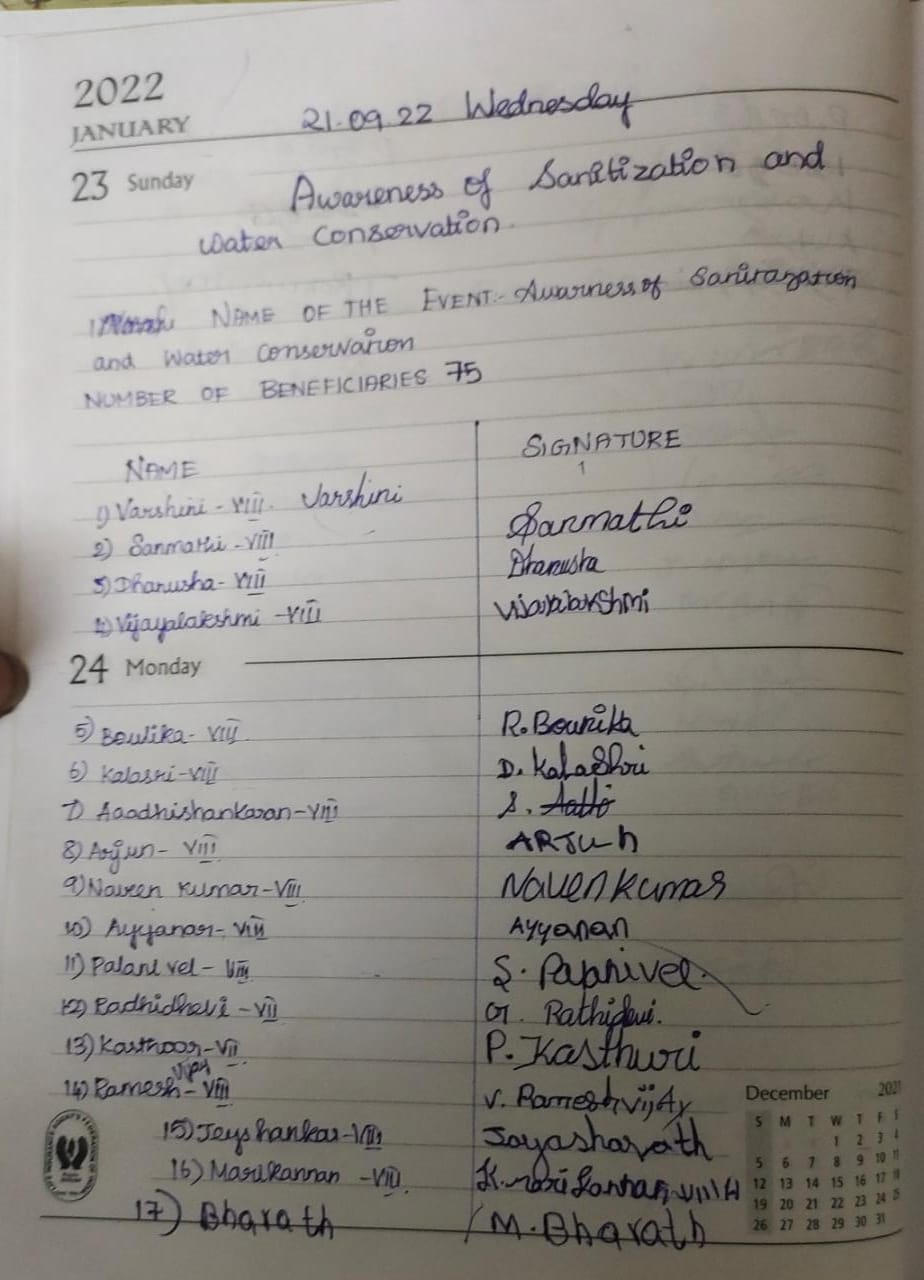 2022
JANUARY
21.09.22 Wednesday
23 Sunday
Awareness of Sanitization and
water Conservation.
NAME OF THE EVENT:- Awarness of Sanitazation
and Water Conservation
NUMBER OF BENEFICIARIES 75
NAME SIGNATURE
1) Varshini - VIII. Varshini
2) Sanmathi - VIII Sanmathi
3) Dhanusha - VIII Dhanusha
4) Vijayalakshmi - VIII Vijayalakshmi
24 Monday
5) Boulika - VIII R. Bounika
6) Kalasri - VIII D. KalaShri
7) Aaadhishankaran - VIII S.
8) Arjun - VIII ARJUn
9) Naveen Kumar - VIII Naven kumar
10) Ayyanar - VIII Ayyanan
11) Palani vel - VIII S. Papnivel.
12) Radhidhevi - VII G. Rathidevi.
13) Kasthoor - VII P. Kasthuri
14) Ramesh Vijay - VIII V. Ramesh vijAy
15) Jeyshankar - VIII Jayasharath
16) Marikannan - VIII.
17) Bharath M. Bharath
December 2021
S M T W T F S
1 2 3 4
5 6 7 8 9 10 11
12 13 14 15 16 17 18
19 20 21 22 23 24 25
26 27 28 29 30 31